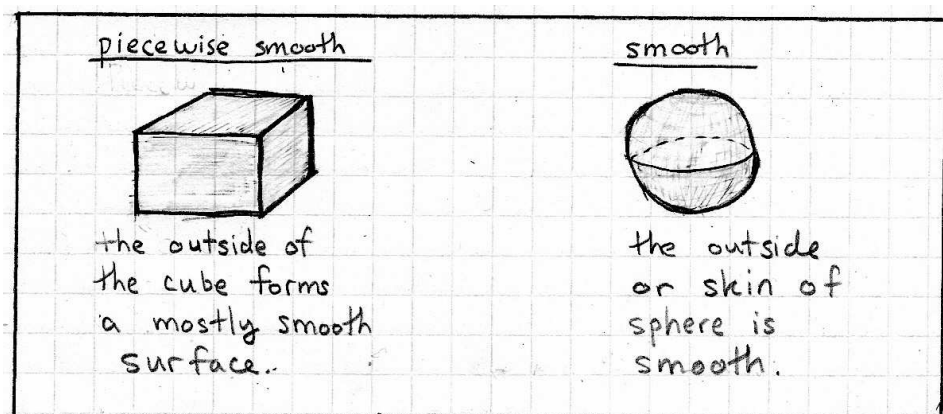 piecewise smooth
the outside of
the cube forms
a mostly smooth
surface..
smooth
the outside
or skin of
sphere is
smooth.